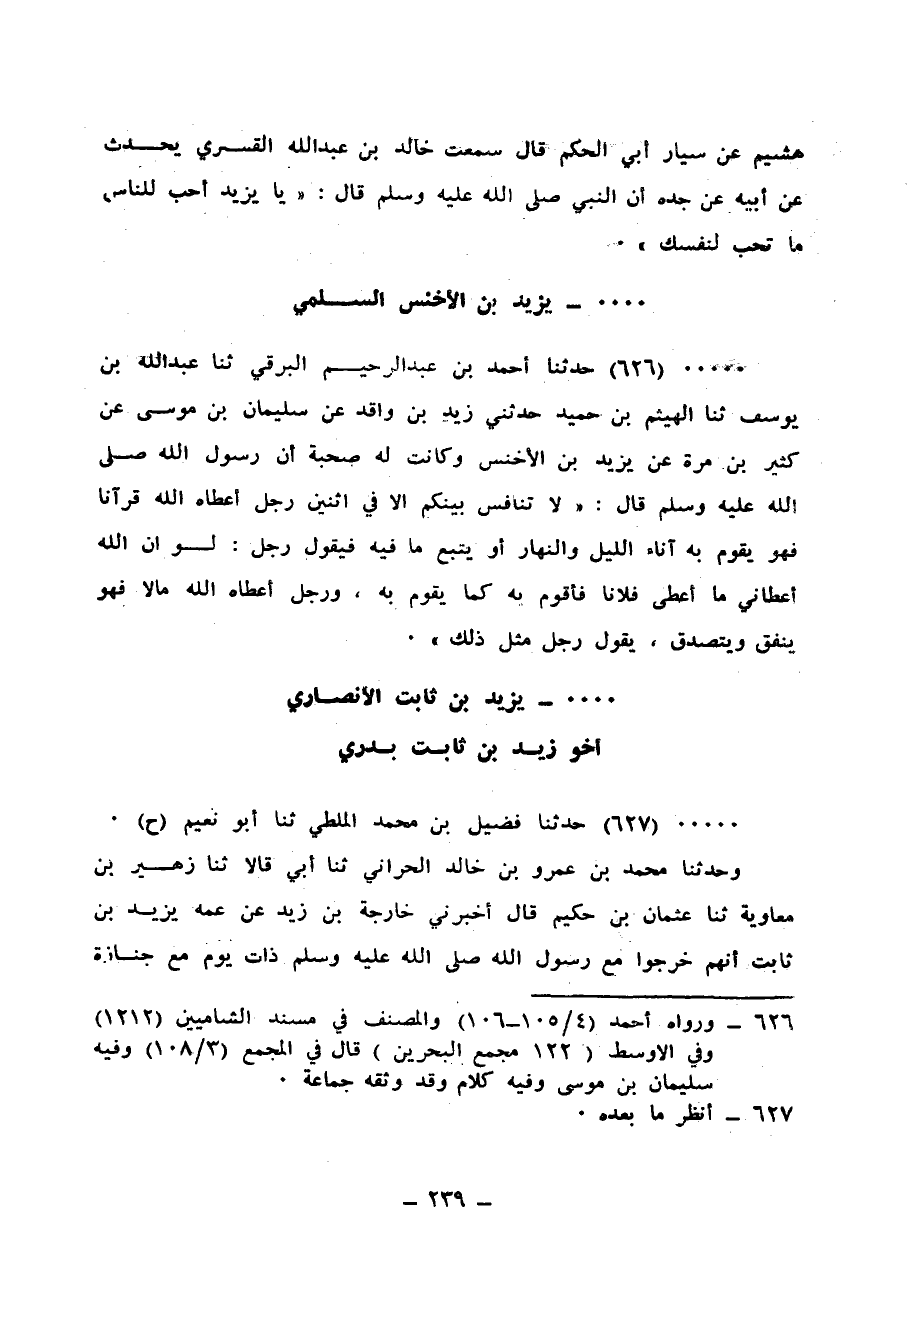 هشيم عن سيار أبي الحكم قال سمعت خالد بن عبدالله القسري يحدث
عن أبيه عن جده أن النبي صلى الله عليه وسلم قال : « يا يزيد أحب للناس
ما تحب لنفسك » ٠
٠٠٠٠ ــ يزيد بن الأخنس السلمي
٠٠٠٠٠ (٦٢٦) حدثنا أحمد بن عبدالرحيم البرقي ثنا عبدالله بن
يوسف ثنا الهيثم بن حميد حدثني زيد بن واقد عن سليمان بن موسى عن
كثير بن مرة عن يزيد بن الأخنس وكانت له صحبة أن رسول الله صلى
الله عليه وسلم قال : « لا تنافس بينكم الا في اثنين رجل أعطاه الله قرآنا
فهو يقوم به آناء الليل والنهار أو يتبع ما فيه فيقول رجل : لو ان الله
أعطاني ما أعطى فلانا فأقوم به كما يقوم به ، ورجل أعطاه الله مالا فهو
ينفق ويتصدق ، يقول رجل مثل ذلك » ٠
٠٠٠٠ ــ يزيد بن ثابت الأنصاري
أخو زيد بن ثابت بدري
٠٠٠٠٠ (٦٢٧) حدثنا فضيل بن محمد الملطي ثنا أبو نعيم (ح) ٠
وحدثنا محمد بن عمرو بن خالد الحراني ثنا أبي قالا ثنا زهير بن
معاوية ثنا عثمان بن حكيم قال أخبرني خارجة بن زيد عن عمه يزيد بن
ثابت أنهم خرجوا مع رسول الله صلى الله عليه وسلم ذات يوم مع جنازة
٦٢٦ ــ ورواه أحمد (٤/١٠٥ــ١٠٦) والمصنف في مسند الشاميين (١٢١٢)
وفي الاوسط ( ١٢٢ مجمع البحرين ) قال في المجمع (٣/١٠٨) وفيه
سليمان بن موسى وفيه كلام وقد وثقه جماعة ٠
٦٢٧ ــ أنظر ما بعده ٠
ــ ٢٣٩ ــ